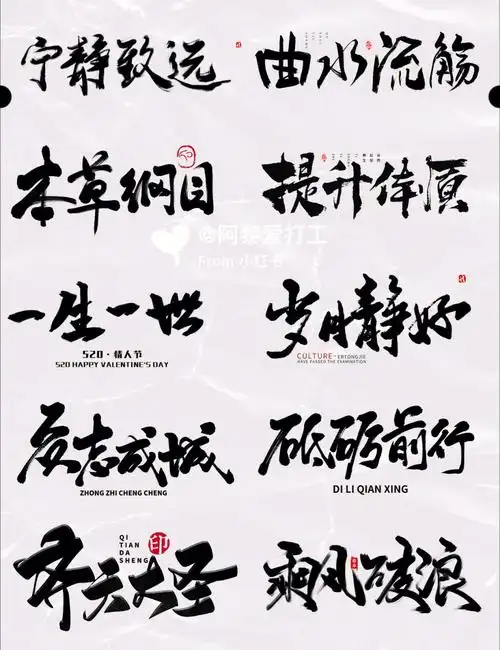 宁静致远
曲水流觞
本草纲目
提升体质
@阿黎爱打工
From 小红书
一生一世
520·情人节
520 HAPPY VALENTINE'S DAY
岁月静好
CULTURE - ERTONGJIE
HAVE PASSED THE EXAMINATION
众志成城
ZHONG ZHI CHENG CHENG
砥砺前行
DI LI QIAN XING
齐天大圣
QI
TIAN
DA
SHENG
印
乘风破浪